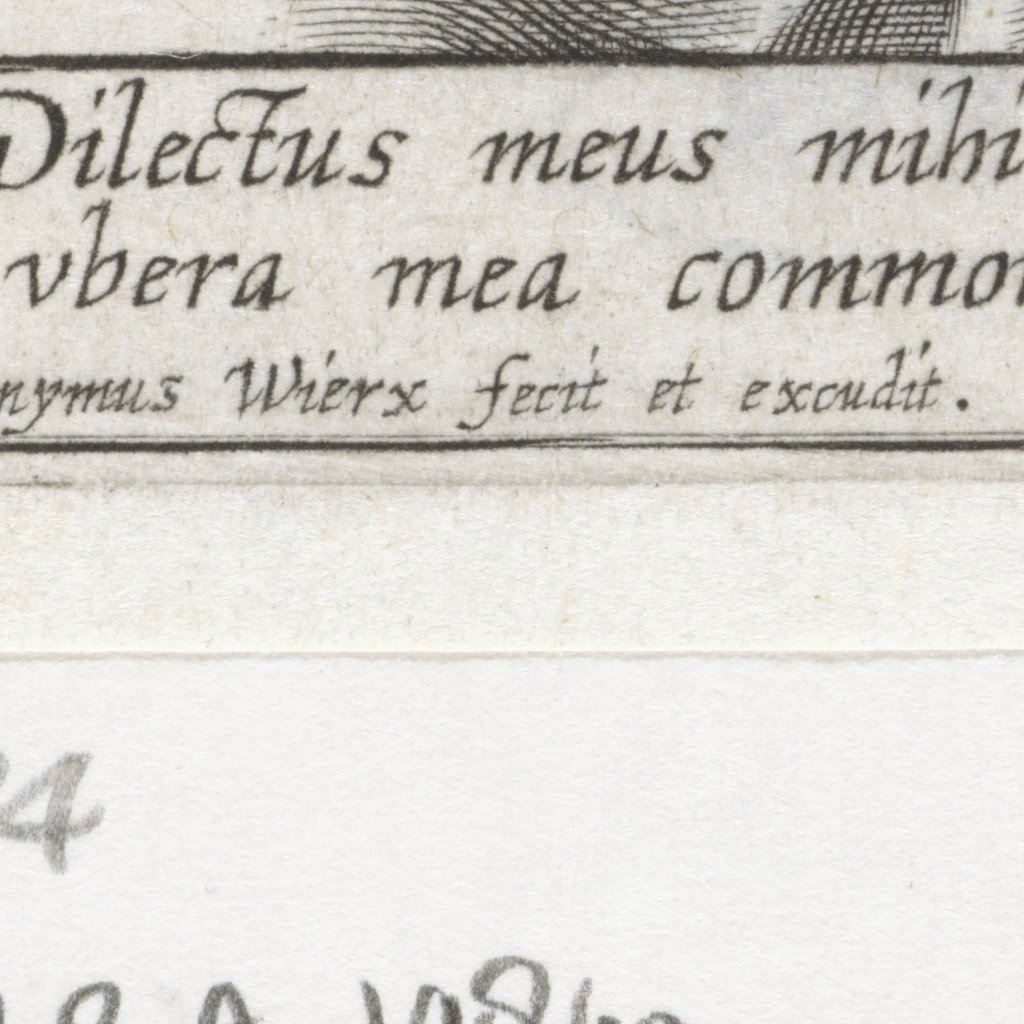 Dilectus meus mihi
vbera mea commo
nymus Wierx fecit et excudit.
4